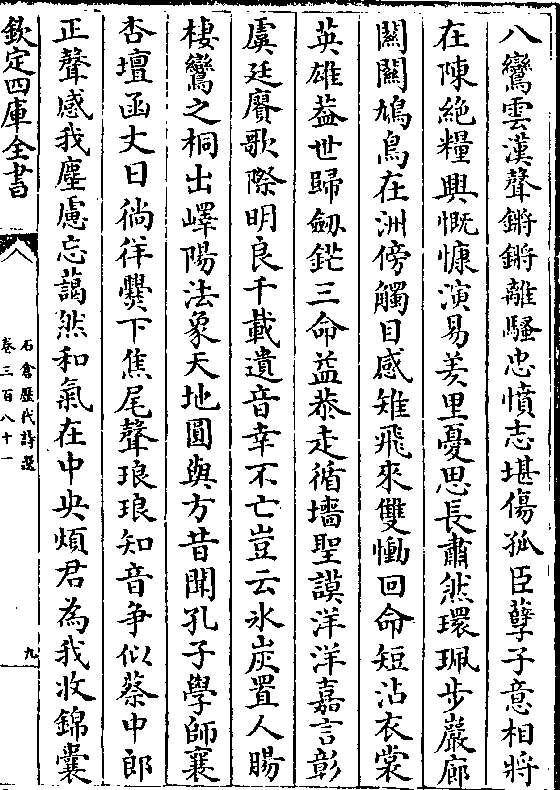 八鸞雲漢聲鏘鏘離騷忠憤志堪傷孤臣孽子意相將
在陳絶糧興慨慷演易羑里憂思長肅然環珮步巖廊
關關鳩鳥在洲傍觸目感雉飛來雙慟回命短沾衣裳
英雄葢世歸劔鋩三命益恭走循墻聖謨洋洋嘉言彰
虞廷賡歌際明良千載遺音幸不亡豈云氷炭置人腸
棲鸞之桐出嶧陽法象天地圓與方昔聞孔子學師襄
杏壇函丈日徜徉㸑下焦尾聲琅琅知音争似蔡中郎
正聲感我塵慮忘藹然和氣在中央煩君為我收錦囊
欽定四庫全書
石倉歷代詩選
卷三百八十一
九